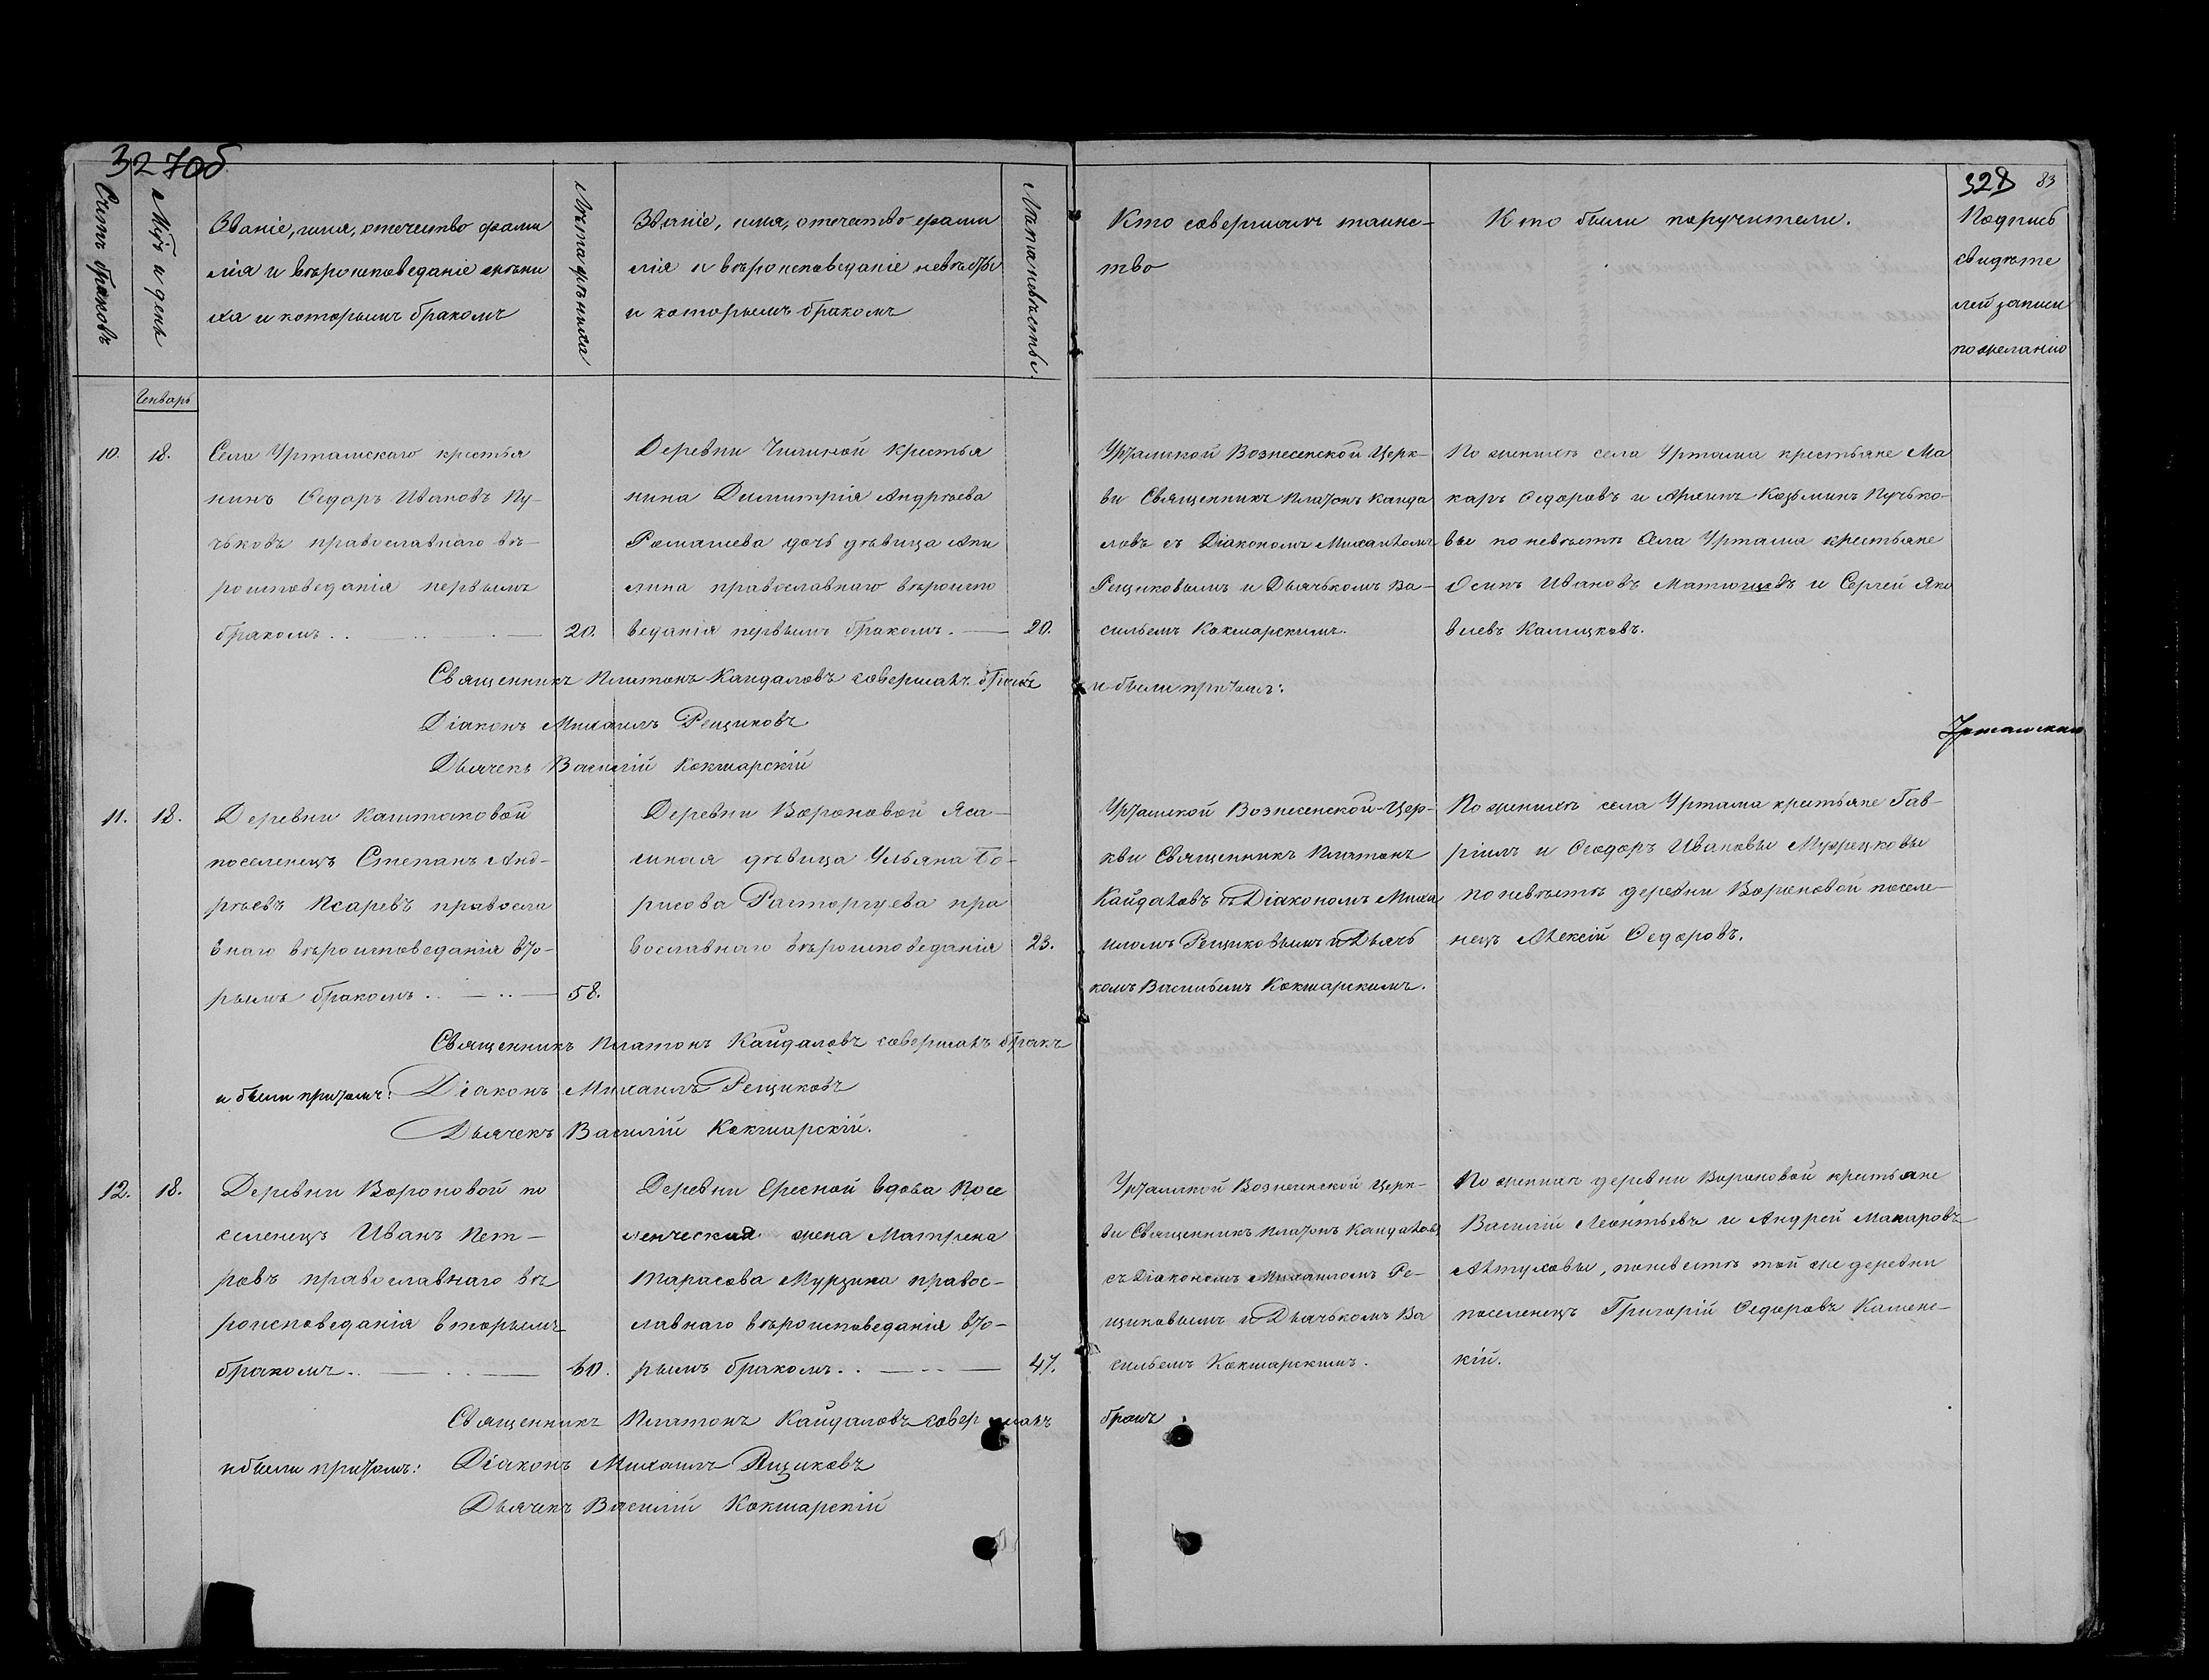 327об
328 83
Счетъ браковъ
Мѣс. и день
Званіе, имя, отечество фами
лія и вѣроисповеданіе жени
ха и которымъ бракомъ
Лѣта жѣниха
Званіе, имя, отечество фами
лія и вѣроисповеданіе невѣсты
и которымъ бракомъ
Лѣта невѣсты.
Кто совершалъ таинс-
тво
Кто были поручители.
Подпись
свидѣте
лей записи
по желанію
Генварь
10.
18.
Села Уртамскаго крестья
нинъ Ѳедоръ Ивановъ Пу-
чьковъ православнаго вѣ-
роисповеданія первымъ
бракомъ..
20.
Деревни Чилиной крестья
нина Димитрія Андрѣева
Ромашева дочь дѣвица Аки
лина православнаго вѣроиспо
веданія первымъ бракомъ.
20.
Уртамской Вознесенской Церк-
ви Священникъ Платонъ Кайда
ловъ съ Діакономъ Михаиломъ
Рещиковымъ и Дьячькомъ Ва-
сильемъ Кокшарскимъ.
По женихѣ села Уртама крестьяне Ма
каръ Ѳедоровъ и Козьминъ Пучько-
вы по невѣстѣ Села Уртама крестьяне
Осипъ Ивановъ и Сергей Яко
влевъ
Священникъ Платонъ Кайдаловъ совершалъ бракъ
и были притомъ:
Діаконъ Михаилъ Рещиковъ
Дьячекъ Василій Кокшарскій
Уртамской
11.
18.
Деревни Каштаковой
поселенецъ Степанъ Анд-
рѣевъ Псаревъ правосла
внаго вѣроисповеданія вто-
рымъ бракомъ..
58.
Деревни Вороновой Яса-
шная дѣвица Ульяна Бо-
рисова Расторгуева пра
вославнаго вѣроисповеданія
23.
Уртамской Вознесенской Цер-
кви Священникъ Платонъ
Кайдаловъ съ Діакономъ Миха
иломъ Рещиковымъ и Дьячь
комъ Васильемъ Кокшарскимъ.
По женихѣ села Уртама крестьяне Гав-
ріилъ и Ѳеодоръ Ивановы
по невѣстѣ деревни Вороновой поселе-
нецъ Алексій Ѳедоровъ.
Священникъ Платонъ Кайдаловъ совершалъ бракъ
и были притомъ: Діаконъ Михаилъ Рещиковъ
Дьячекъ Василій Кокшарскій.
12.
18.
Деревни Вороновой по
селенецъ Иванъ Пет-
ровъ православнаго вѣ
роисповеданія вторымъ
бракомъ..
60.
Деревни Ересной вдова Посе
ленческая жена Матрена
Тарасова Мурзина правос-
лавнаго вѣроисповеданія вто-
рымъ бракомъ..
47.
Уртамской Вознесенской Церк-
ви Священникъ Платонъ Кайдаловъ
съ Діакономъ Михаиломъ Ре-
щиковымъ и Дьячькомъ Ва
сильемъ Кокшарскимъ.
По женихѣ деревни Вороновой крестьяне
Василій Леонтьевъ и Андрей Макаровъ
Алтуховы, по невестѣ той же деревни
поселенецъ Григорій Ѳедоровъ Каменс-
кій.
Священникъ Платонъ Кайдаловъ совершалъ бракъ
и были притомъ: Діаконъ Михаилъ Рещиковъ
Дьячекъ Василій Кокшарскій